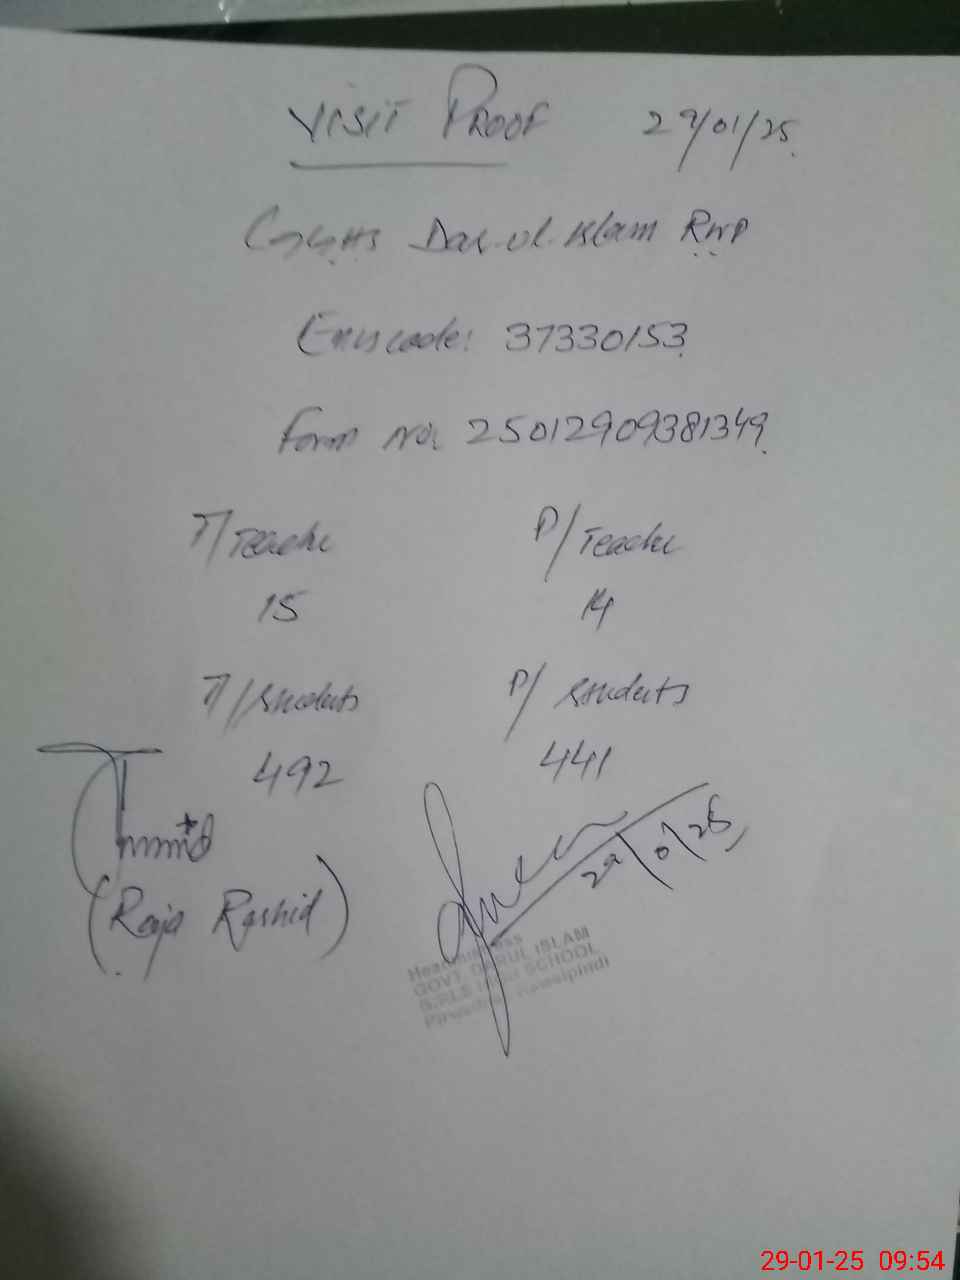 VISIT PROOF 29/01/25.
GGHS Dar-ul-Islam Rwp
Emis code: 37330153
Form no. 25012909381349
T/Teache P/Teache
15 14
T/Students P/Students
492 441
(Raja Rashid)
29/01/25
Headmistress
GOVT. DARUL ISLAM
GIRLS HIGH SCHOOL
Rawalpindi
29-01-25 09:54